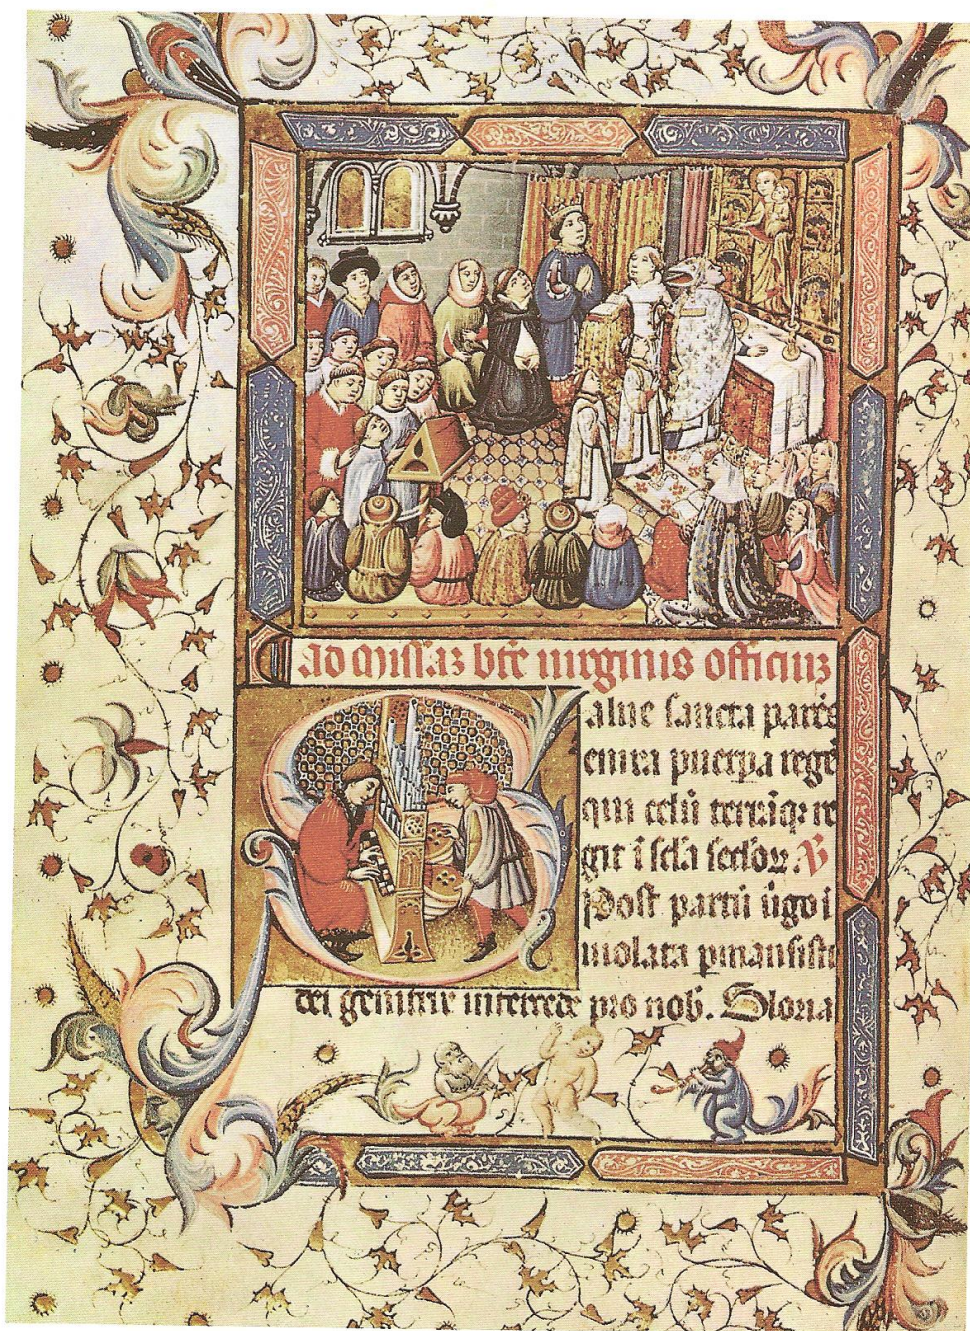 Ad missaz bt̄e uirginis officiuz
Salue sancta parēs
enixa puerpa regē
qui celū terrāqȝ re
git ī scl̄a scl̄oꝝ. V
Post partū ūgo ī
uiolata pmansisti
dei genitrix intercede pro nob. Gloria